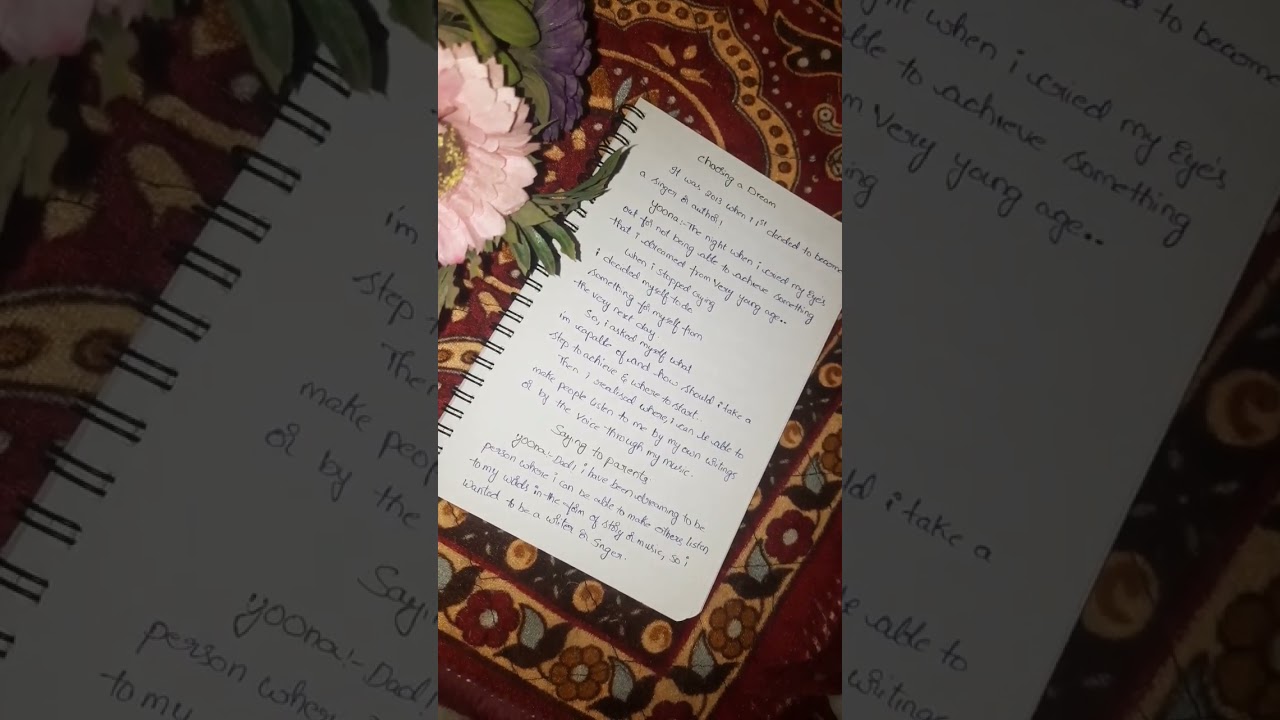 Chasing a Dream
It was 2013 when I 1st decided to become
a singer or author!
yoona:-The night when i cried my Eye's
out for not being able to achieve something
that i dreamed from very young age..
when i stopped crying
i decided myself to do
something for myself from
the very next day.
So, i asked myself what
im capable of and how should i take a
step to achieve & where to start.
Then i realised where, i can be able to
make people listen to me by my own writings
or by the voice through my music.
Saying to parents
yoona:-Dad! i have been dreaming to be
person where i can be able to make others listen
to my words in the form of story or music, so i
wanted to be a writer or singer.